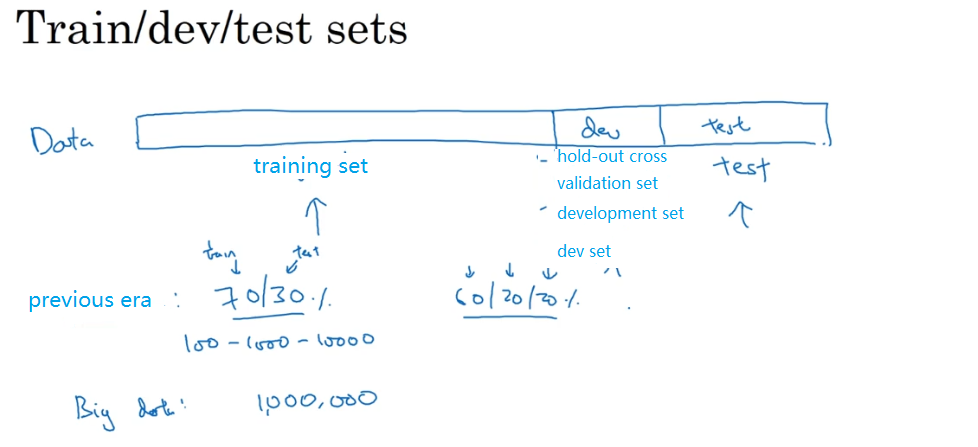 Train/dev/test sets
Data
dev
test
training set
- hold-out cross
validation set
- development set
dev set
test
train test
previous era : 70/30 %
60/20/20 %
100 - 1000 - 10000
Big data: 1,000,000